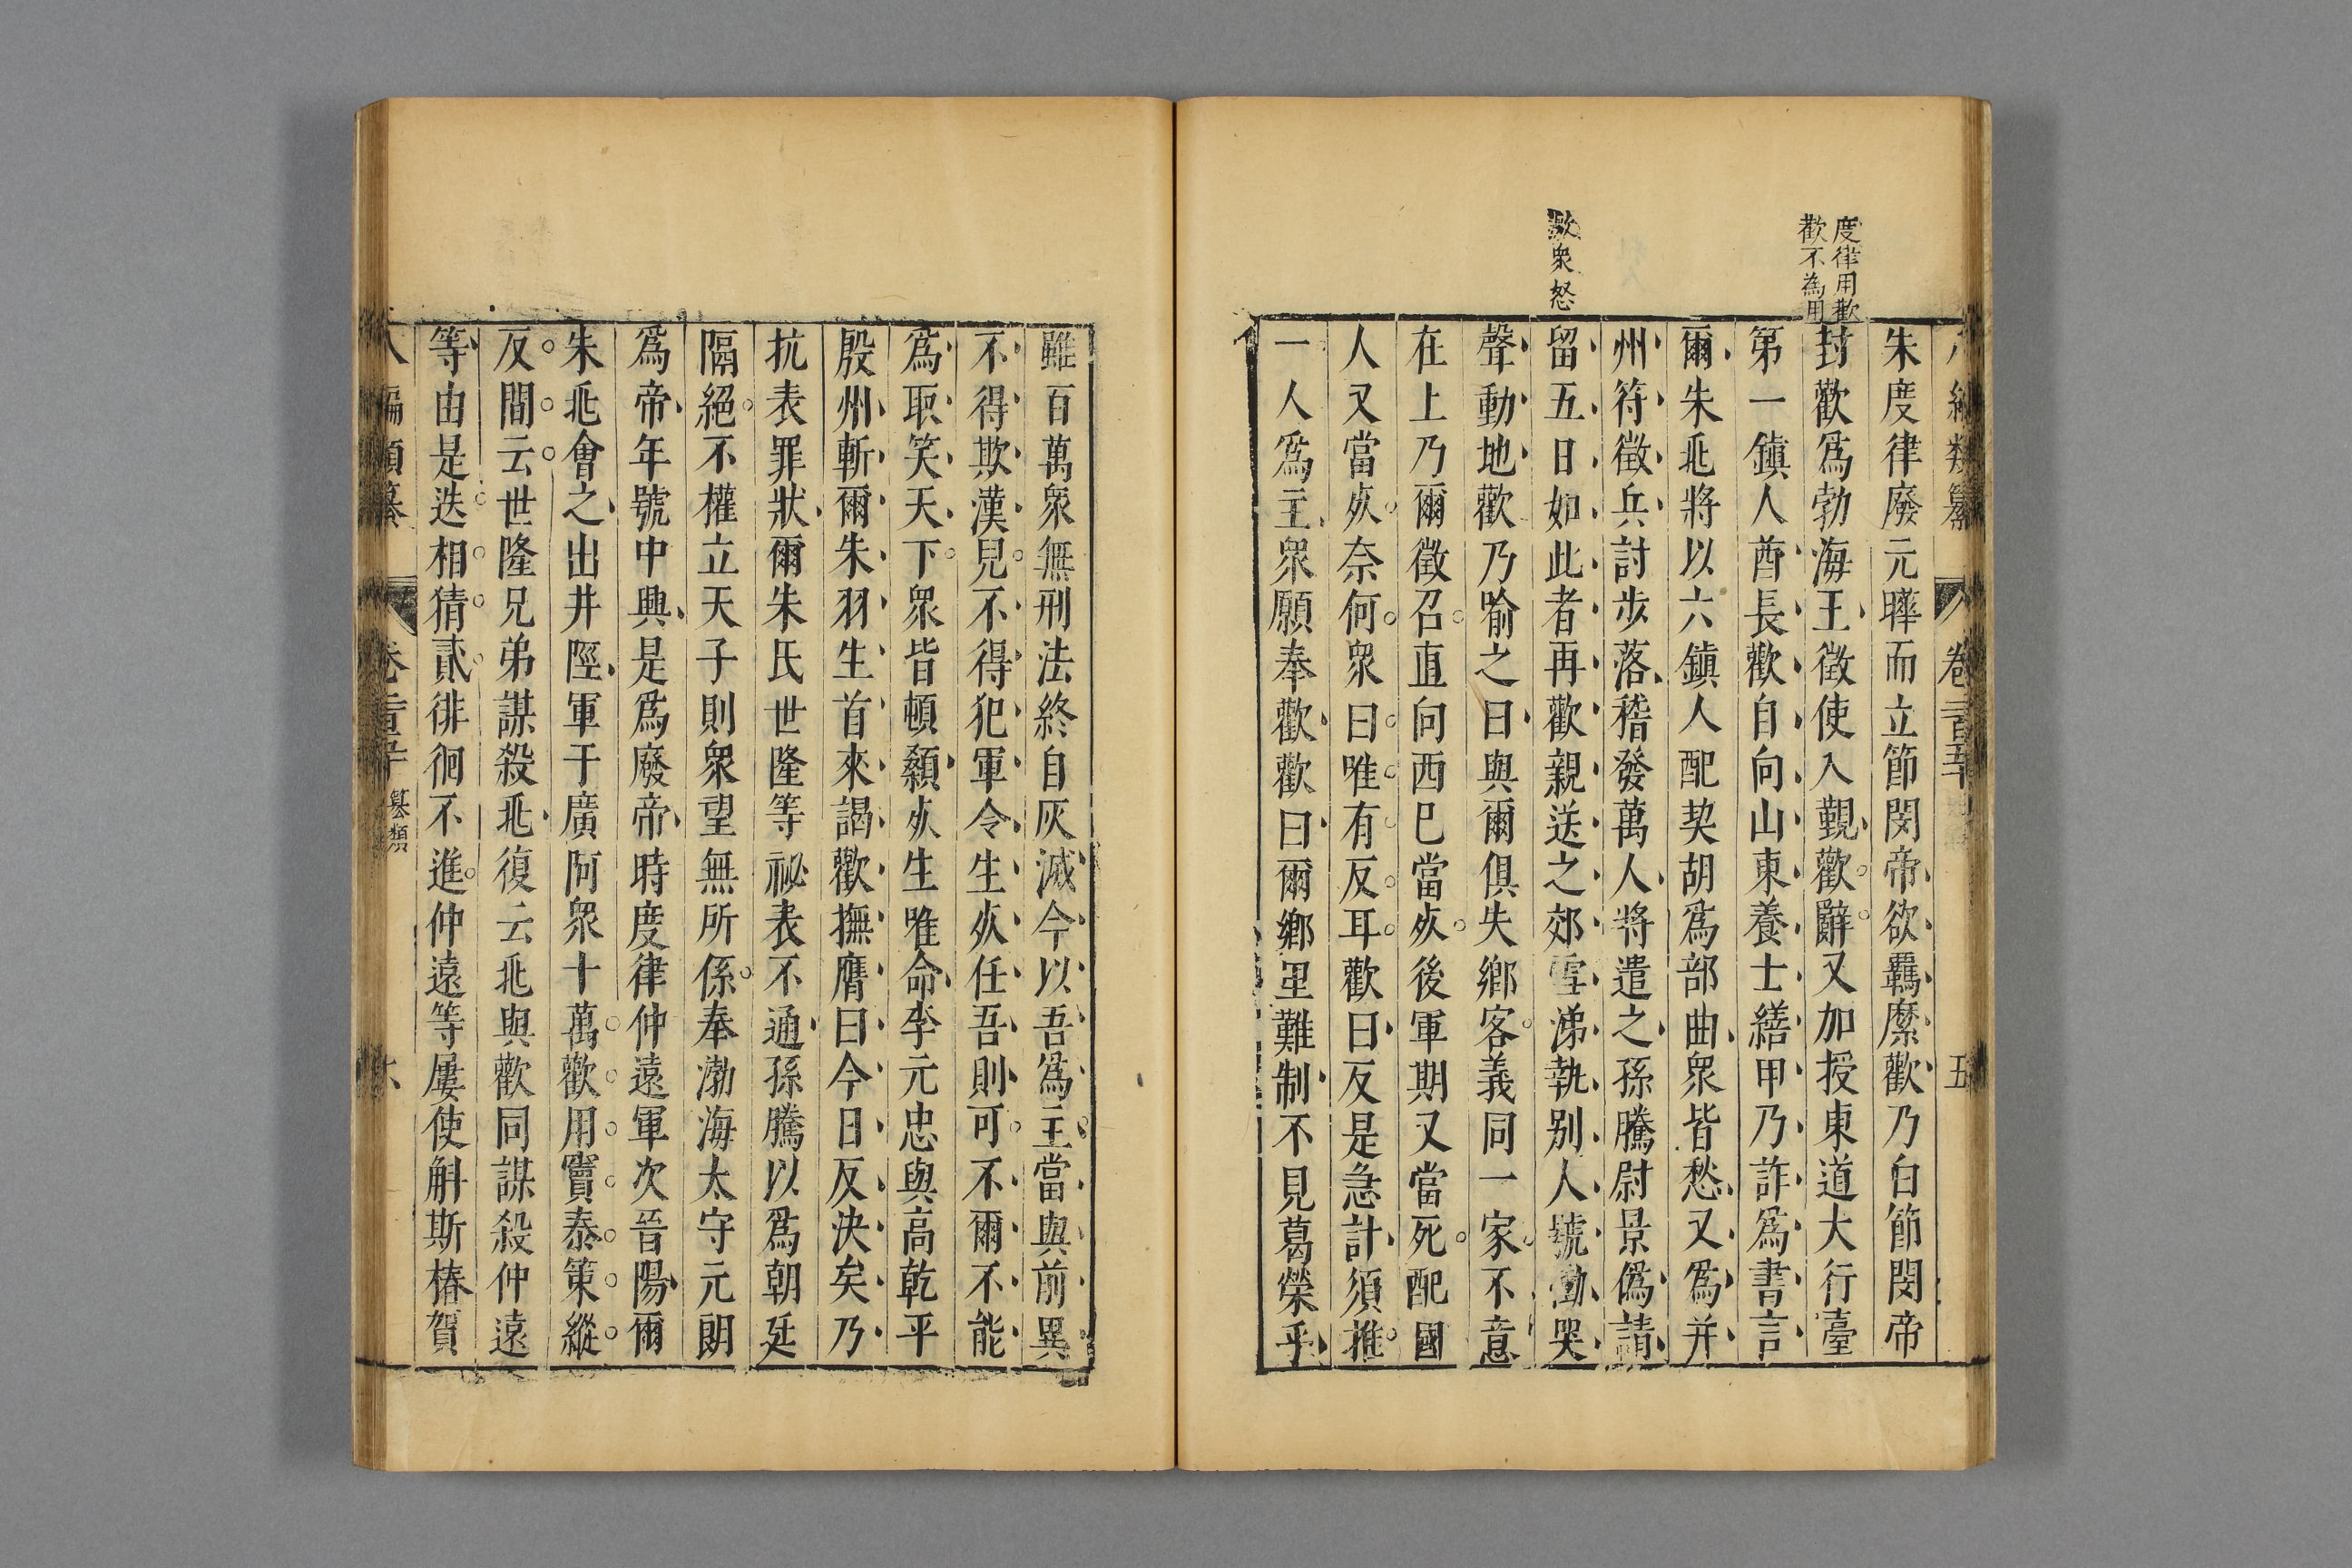 度律用歡
歡不為用
激衆怒
朱度律廢元曄而立節閔帝欲羈縻歡乃白節閔帝
封歡爲勃海王徵使入覲歡辭又加授東道大行臺
第一鎮人酋長歡自向山東養士繕甲乃詐爲書言
爾朱兆將以六鎮人配契胡爲部曲衆皆愁又爲并
州符徵兵討步落稽發萬人將遣之孫騰尉景僞請
留五日如此者再歡親送之郊雪涕執别人號慟哭
聲動地歡乃喻之曰與爾俱失鄉客義同一家不意
在上乃爾徵召直向西巳當死後軍期又當死配國
人又當死奈何衆曰唯有反耳歡曰反是急計須推
一人爲主衆願奉歡歡曰爾鄉里難制不見葛榮乎
雖百萬衆無刑法終自灰滅今以吾爲主當與前異
不得欺漢兒不得犯軍令生死任吾則可不爾不能
爲取笑天下衆皆頓顙死生唯命李元忠與高乾平
殷州斬爾朱羽生首來謁歡撫膺曰今日反決矣乃
抗表罪狀爾朱氏世隆等祕表不通孫騰以爲朝廷
隔絕不權立天子則衆望無所係奉渤海太守元朗
爲帝年號中興是爲廢帝時度律仲遠軍次晉陽爾
朱兆會之出井陘軍于廣阿衆十萬歡用竇泰策縱
反間云世隆兄弟謀殺兆復云兆與歡同謀殺仲遠
等由是迭相猜貳徘徊不進仲遠等屢使斛斯椿賀